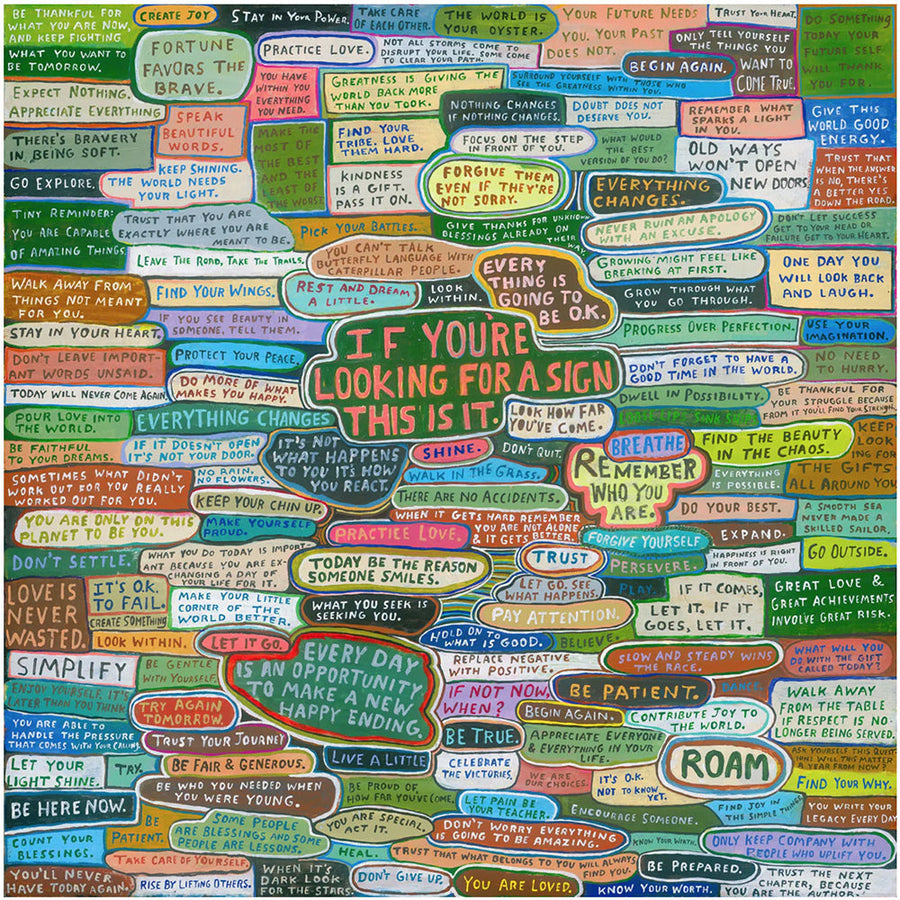 BE THANKFUL FOR
WHAT YOU ARE NOW,
AND KEEP FIGHTING
WHAT YOU WANT TO
BE TOMORROW.
CREATE JOY
STAY IN YOUR POWER.
TAKE CARE
OF EACH OTHER.
THE WORLD IS
YOUR OYSTER.
YOUR FUTURE NEEDS
YOU. YOUR PAST
DOES NOT.
TRUST YOUR HEART.
DO SOMETHING
TODAY YOUR
FUTURE SELF
WILL THANK
YOU FOR.
FORTUNE
FAVORS THE
BRAVE.
PRACTICE LOVE.
NOT ALL STORMS COME TO
DISRUPT YOUR LIFE. SOME COME
TO CLEAR YOUR PATH.
ONLY TELL YOURSELF
THE THINGS YOU
WANT TO
COME TRUE.
BEGIN AGAIN.
EXPECT NOTHING.
APPRECIATE EVERYTHING
YOU HAVE
WITHIN YOU
EVERYTHING
YOU NEED.
GREATNESS IS GIVING THE
WORLD BACK MORE
THAN YOU TOOK.
SURROUND YOURSELF WITH THOSE WHO
SEE THE GREATNESS WITHIN YOU.
NOTHING CHANGES
IF NOTHING CHANGES.
DOUBT DOES NOT
DESERVE YOU.
REMEMBER WHAT
SPARKS A LIGHT
IN YOU.
GIVE THIS
WORLD GOOD
ENERGY.
THERE'S BRAVERY
IN BEING SOFT.
SPEAK
BEAUTIFUL
WORDS.
MAKE THE
MOST OF
THE BEST
AND THE
LEAST OF
THE WORST.
FIND YOUR
TRIBE. LOVE
THEM HARD.
FOCUS ON THE STEP
IN FRONT OF YOU.
WHAT WOULD
THE BEST
VERSION OF YOU DO?
OLD WAYS
WON'T OPEN
NEW DOORS.
TRUST THAT
WHEN THE ANSWER
IS NO, THERE'S
A BETTER YES
DOWN THE ROAD.
GO EXPLORE.
KEEP SHINING.
THE WORLD NEEDS
YOUR LIGHT.
KINDNESS
IS A GIFT.
PASS IT ON.
FORGIVE THEM
EVEN IF THEY'RE
NOT SORRY.
EVERYTHING
CHANGES.
TINY REMINDER:
YOU ARE CAPABLE
OF AMAZING THINGS
TRUST THAT YOU ARE
EXACTLY WHERE YOU ARE
MEANT TO BE.
PICK YOUR BATTLES.
GIVE THANKS FOR UNKNOWN
BLESSINGS ALREADY ON
THEIR WAY.
NEVER RUIN AN APOLOGY
WITH AN EXCUSE.
DON'T LET SUCCESS
GET TO YOUR HEAD OR
FAILURE GET TO YOUR HEART.
LEAVE THE ROAD, TAKE THE TRAILS.
YOU CAN'T TALK
BUTTERFLY LANGUAGE WITH
CATERPILLAR PEOPLE.
EVERY
THING IS
GOING TO
BE O.K.
GROWING MIGHT FEEL LIKE
BREAKING AT FIRST.
ONE DAY YOU
WILL LOOK BACK
AND LAUGH.
WALK AWAY FROM
THINGS NOT MEANT
FOR YOU.
FIND YOUR WINGS.
REST AND DREAM
A LITTLE.
LOOK
WITHIN.
GROW THROUGH WHAT
YOU GO THROUGH.
STAY IN YOUR HEART.
IF YOU SEE BEAUTY IN
SOMEONE, TELL THEM.
IF YOU'RE
LOOKING FOR A SIGN
THIS IS IT.
PROGRESS OVER PERFECTION.
USE YOUR
IMAGINATION.
DON'T LEAVE IMPORT-
ANT WORDS UNSAID.
PROTECT YOUR PEACE.
DON'T FORGET TO HAVE A
GOOD TIME IN THE WORLD.
NO NEED
TO HURRY.
TODAY WILL NEVER COME AGAIN.
DO MORE OF WHAT
MAKES YOU HAPPY.
DWELL IN POSSIBILITY.
BE THANKFUL FOR
YOUR STRUGGLE BECAUSE
FROM IT YOU'LL FIND YOUR STRENGTH
POUR LOVE INTO
THE WORLD.
EVERYTHING CHANGES
LOOK HOW FAR
YOU'VE COME.
LOOSE LIPS SINK SHIPS
BE FAITHFUL
TO YOUR DREAMS.
IF IT DOESN'T OPEN
IT'S NOT YOUR DOOR.
IT'S NOT
WHAT HAPPENS
TO YOU IT'S HOW
YOU REACT.
SHINE.
DON'T QUIT.
BREATHE
FIND THE BEAUTY
IN THE CHAOS.
KEEP
LOOK
ING FOR
THE GIFTS
ALL AROUND YOU
SOMETIMES WHAT DIDN'T
WORK OUT FOR YOU REALLY
WORKED OUT FOR YOU.
NO RAIN.
NO FLOWERS.
WALK IN THE GRASS.
REMEMBER
WHO YOU
ARE.
EVERYTHING
IS POSSIBLE.
KEEP YOUR CHIN UP.
THERE ARE NO ACCIDENTS.
DO YOUR BEST.
A SMOOTH SEA
NEVER MADE A
SKILLED SAILOR.
YOU ARE ONLY ON THIS
PLANET TO BE YOU.
MAKE YOURSELF
PROUD.
PRACTICE LOVE.
WHEN IT GETS HARD REMEMBER
YOU ARE NOT ALONE
& IT GETS BETTER.
FORGIVE YOURSELF
EXPAND.
DON'T SETTLE.
WHAT YOU DO TODAY IS IMPORT-
ANT BECAUSE YOU ARE EX-
CHANGING A DAY OF
YOUR LIFE FOR IT.
TODAY BE THE REASON
SOMEONE SMILES.
TRUST
PERSEVERE.
HAPPINESS IS RIGHT
IN FRONT OF YOU.
GO OUTSIDE.
LOVE IS
NEVER
WASTED.
IT'S O.K.
TO FAIL.
CREATE SOMETHING
MAKE YOUR LITTLE
CORNER OF THE
WORLD BETTER.
WHAT YOU SEEK IS
SEEKING YOU.
LET GO. SEE
WHAT HAPPENS.
PLAY.
PAY ATTENTION.
IF IT COMES,
LET IT. IF IT
GOES, LET IT.
GREAT LOVE &
GREAT ACHIEVEMENTS
INVOLVE GREAT RISK.
LOOK WITHIN.
LET IT GO.
HOLD ON TO
WHAT IS GOOD.
BELIEVE.
SIMPLIFY
BE GENTLE
WITH YOURSELF.
EVERY DAY
IS AN OPPORTUNITY
TO MAKE A NEW
HAPPY ENDING.
REPLACE NEGATIVE
WITH POSITIVE.
SLOW AND STEADY WINS
THE RACE.
WHAT WILL YOU
DO WITH THE GIFT
CALLED TODAY?
ENJOY YOURSELF, IT'S
LATER THAN YOU THINK
TRY AGAIN
TOMORROW.
IF NOT NOW,
WHEN?
BE PATIENT.
DANCE.
WALK AWAY
FROM THE TABLE
IF RESPECT IS NO
LONGER BEING SERVED.
BEGIN AGAIN.
CONTRIBUTE JOY TO
THE WORLD.
YOU ARE ABLE TO
HANDLE THE PRESSURE
THAT COMES WITH YOUR CALLING
TRUST YOUR JOURNEY
BE TRUE.
APPRECIATE EVERYONE
& EVERYTHING IN YOUR
LIFE.
ROAM
ASK YOURSELF THIS QUEST
ION: WILL THIS MATTER
A YEAR FROM NOW?
LET YOUR
LIGHT SHINE.
TRY.
BE FAIR & GENEROUS.
LIVE A LITTLE
CELEBRATE
THE VICTORIES.
WE ARE
OUR CHOICES.
IT'S O.K.
NOT TO KNOW
YET.
FIND YOUR WHY.
BE HERE NOW.
BE WHO YOU NEEDED WHEN
YOU WERE YOUNG.
BE PROUD OF
HOW FAR YOU'VE COME.
LET PAIN BE
YOUR TEACHER.
ENCOURAGE SOMEONE.
FIND JOY IN
THE SIMPLE THINGS
YOU WRITE YOUR
LEGACY EVERY DAY
COUNT YOUR
BLESSINGS.
BE
PATIENT.
SOME PEOPLE
ARE BLESSINGS AND SOME
PEOPLE ARE LESSONS.
YOU ARE SPECIAL.
ACT IT.
DON'T WORRY EVERYTHING
IS GOING TO BE AMAZING.
KNOW YOUR WORTH.
ONLY KEEP COMPANY WITH
PEOPLE WHO UPLIFT YOU.
TAKE CARE OF YOURSELF.
HEAL.
TRUST THAT WHAT BELONGS TO YOU WILL ALWAYS
FIND YOU.
BE PREPARED.
YOU'LL NEVER
HAVE TODAY AGAIN.
RISE BY LIFTING OTHERS.
WHEN IT'S
DARK LOOK
FOR THE STARS.
DON'T GIVE UP.
YOU ARE LOVED.
KNOW YOUR WORTH.
TRUST THE NEXT
CHAPTER, BECAUSE
YOU ARE THE AUTHOR.